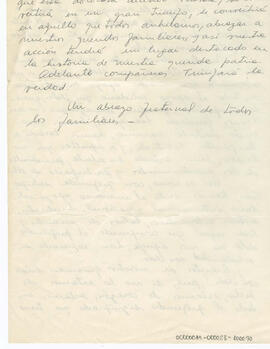 que esa dolorosa
vertia en un gran triunfo, se convertira
en aquello que todos anhelamos, abrazar a
nuestros queridos familiares, y asi nuestra
acción tendrá un lugar destacado en
la historia de nuestra querida patria.
Adelante compañeros Triunfará la
verdad.
Un abrazo fraternal de todos
los familiares.-